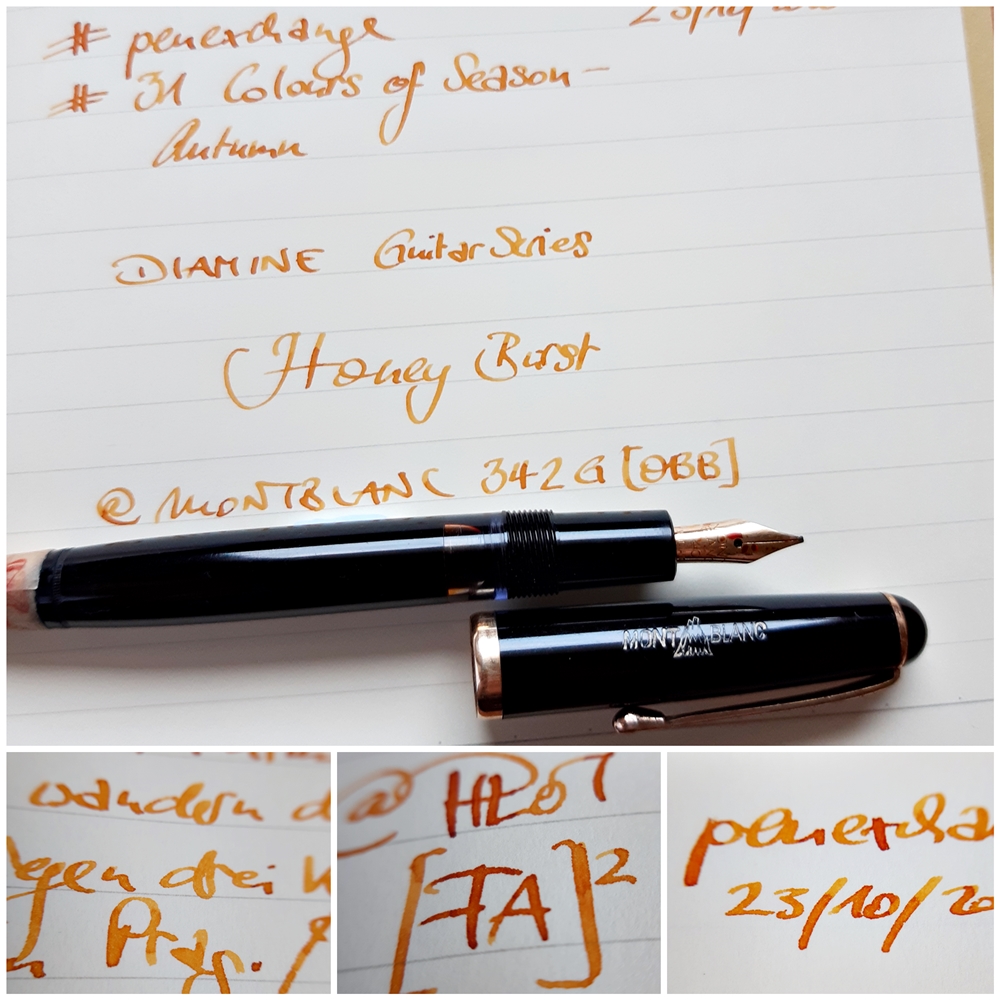 # penexchange
# 31 Colours of Season-
Autumn
DIAMINE Guitar Series
Honey Burst
@ MONTBLANC 342 G [OBB]
MONT BLANC
wandern d
egen drei
Prag.
@
[FA]²
penexcha
23/10/20